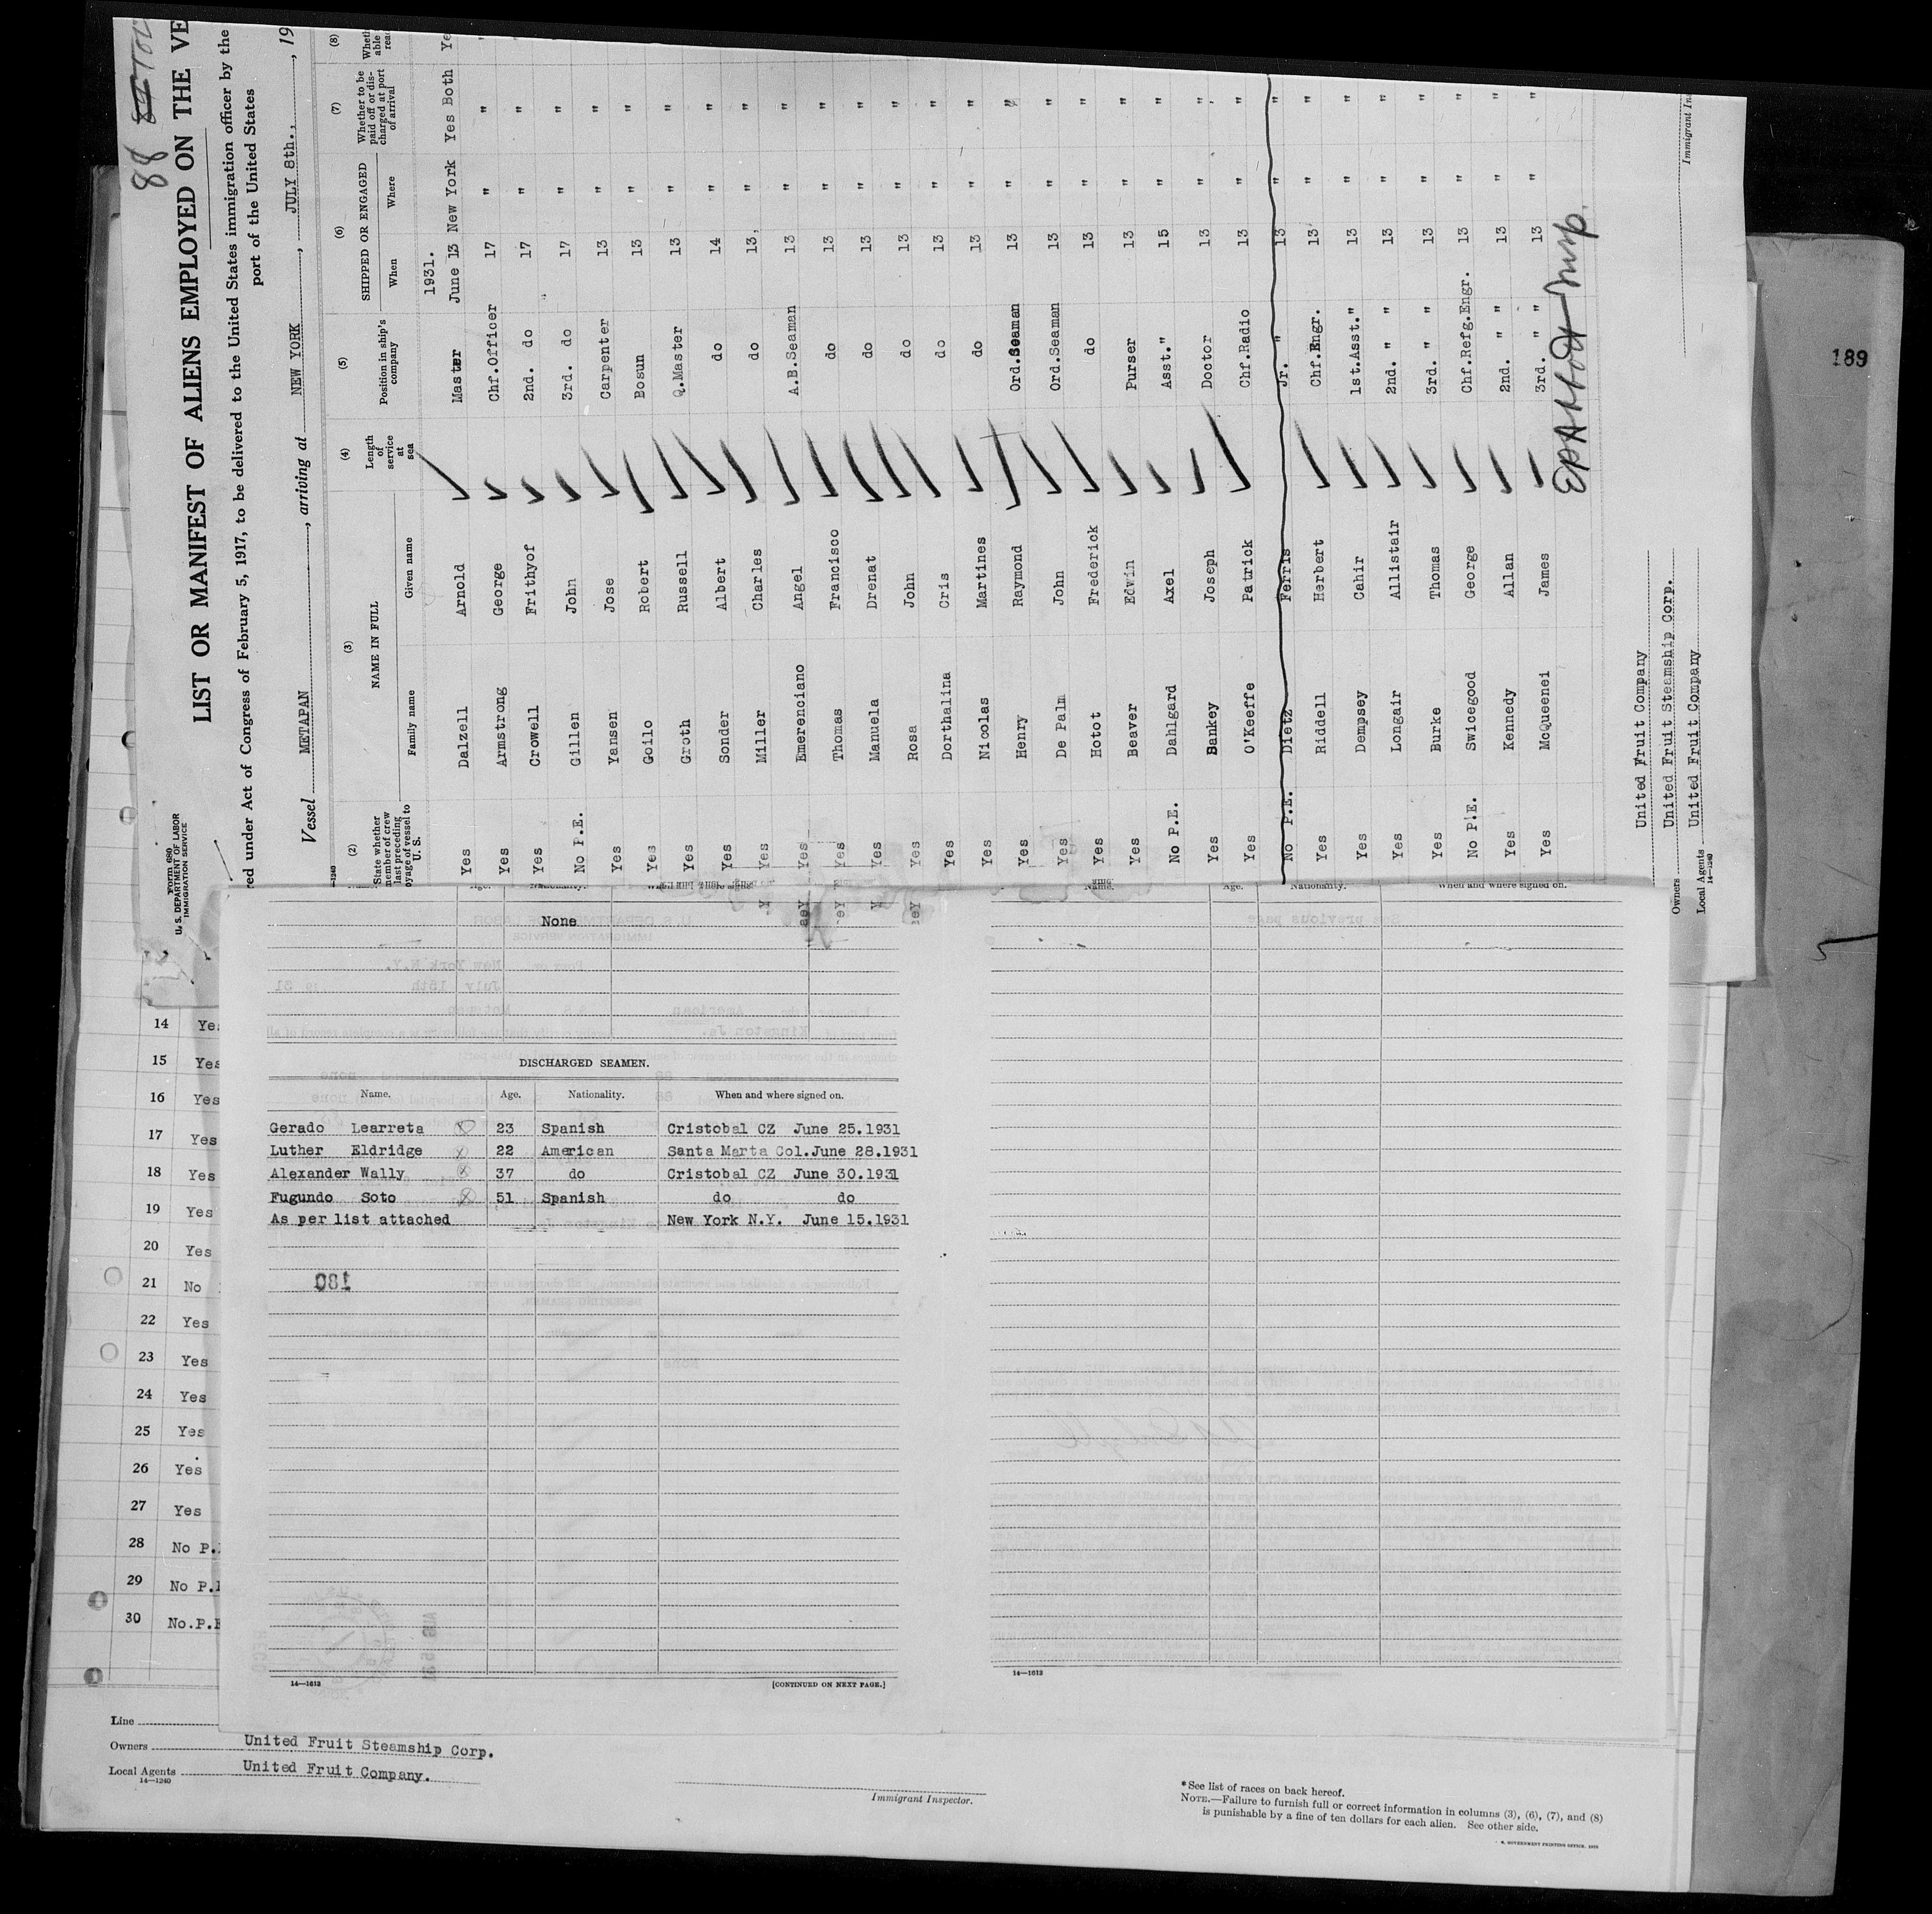 88
LIST OR MANIFEST OF ALIENS EMPLOYED ON THE VE
red under Act of Congress of February 5, 1917, to be delivered to the United States immigration officer by the
port of the United States
Form 680
U. S. DEPARTMENT OF LABOR
IMMIGRATION SERVICE
Vessel METAPAN , arriving at NEW YORK , JULY 8th., , 19
(2) (3) (4) (5) (6) (7) (8)
State whether member of crew last preceding voyage of vessel to U. S. NAME IN FULL Length of service at sea Position in ship's company SHIPPED OR ENGAGED Whether to be paid off or discharged at port of arrival
Family name Given name When Where
1931.
Yes Dalzell Arnold Master June 13 New York Yes Both Ye
Yes Armstrong George Chf.Officer 17 " "
Yes Crowell Frithyof 2nd. do 17 " "
No P.E. Gillen John 3rd. do 17 " "
Yes Yansen Jose Carpenter 13 " "
Yes Goilo Robert Bosun 13 " "
Yes Groth Russell Q.Master 13 " "
Yes Sonder Albert do 14 " "
Yes Miller Charles do 13, " "
Yes Emerenciano Angel A.B.Seaman 13 " "
Yes Thomas Francisco do 13 " "
Yes Manuela Drenat do 13 " "
Yes Rosa John do 13 " "
Yes Dorthalina Cris do 13 " "
Yes Nicolas Martines do 13 " "
Yes Henry Raymond Ord.Seaman 13 " "
Yes De Palm John Ord.Seaman 13 " "
Yes Hotot Frederick do 13 " "
Yes Beaver Edwin Purser 13 " "
No P.E. Dahlgard Axel Asst." 15 " "
Yes Bankey Joseph Doctor 13 " "
Yes O'Keeffe Patrick Chf.Radio 13 " "
No P.E. Dietz Ferris Jr. " 13 " "
Yes Riddell Herbert Chf.Engr. 13 " "
Yes Dempsey Cahir 1st.Asst." 13 " "
Yes Longair Allistair 2nd. " " 13 " "
Yes Burke Thomas 3rd. " " 13 " "
No P.E. Swicegood George Chf.Refg.Engr. 13 " "
Yes Kennedy Allan 2nd. " " 13 " "
Yes McQueenei James 3rd. " " 13 " "
United Fruit Company
Owners United Fruit Steamship Corp.
Local Agents United Fruit Company
14—1240
Immigrant Ins
189
None
DISCHARGED SEAMEN.
Name. Age. Nationality. When and where signed on.
Gerado Learreta 23 Spanish Cristobal CZ June 25.1931
Luther Eldridge 22 American Santa Marta Col.June 28.1931
Alexander Wally 37 do Cristobal CZ June 30.1931
Fugundo Soto 51 Spanish do do
As per list attached New York N.Y. June 15.1931
14—1613
[CONTINUED ON NEXT PAGE.]
Name. Age. Nationality. When and where signed on.
14—1613
14 Yes
15 Yes
16 Yes
17 Yes
18 Yes
19 Yes
20 Yes
21 No
22 Yes
23 Yes
24 Yes
25 Yes
26 Yes
27 Yes
28 No P.
29 No P.
30 No.P.E
Line
Owners United Fruit Steamship Corp.
Local Agents United Fruit Company.
14—1240
Immigrant Inspector.
*See list of races on back hereof.
NOTE.—Failure to furnish full or correct information in columns (3), (6), (7), and (8)
is punishable by a fine of ten dollars for each alien. See other side.